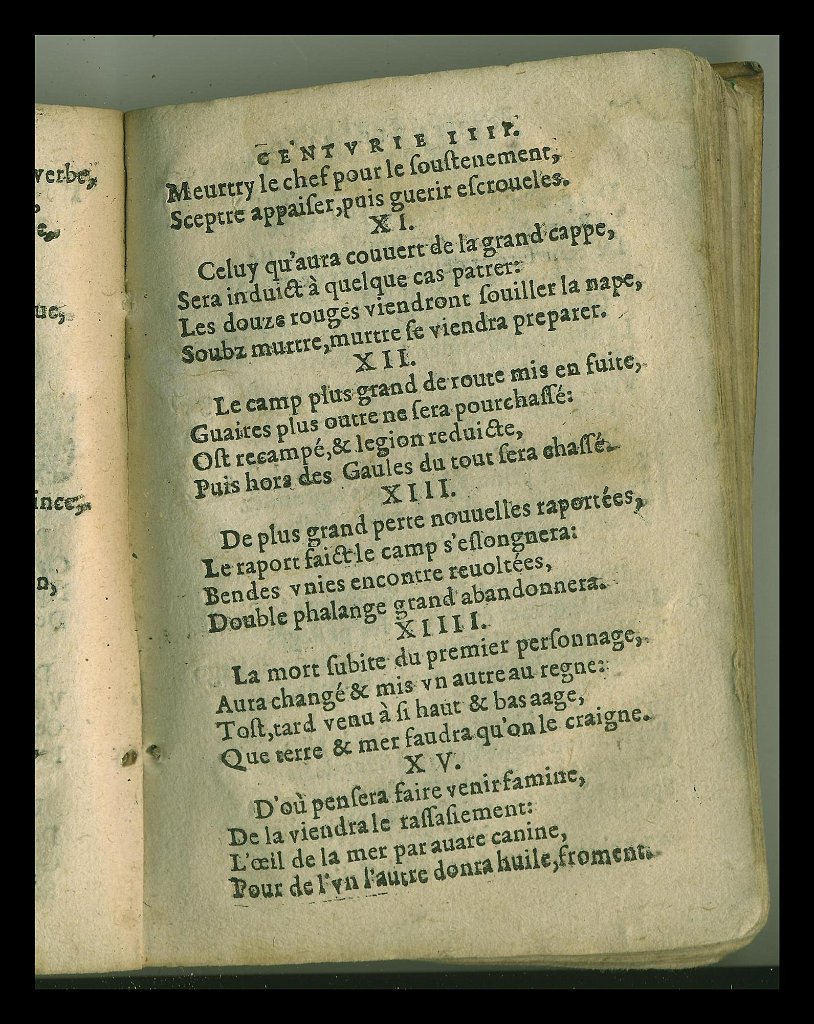 verbe,
e,
ue,
ince,
n,
CENTVRIE IIII.
Meurtry le chef pour le ſouſtenement,
Sceptre appaiſer, puis guerir eſcrouelles.
XI.
Celuy qu'aura couuert de la grand cappe,
Sera induict à quelque cas patrer:
Les douze rouges viendront ſouiller la nape,
Soubz murtre, murtre ſe viendra preparer.
XII.
Le camp plus grand de route mis en fuite,
Guaires plus outre ne ſera pourchaſſé:
Oſt recampé, & legion reduicte,
Puis hors des Gaules du tout ſera chaſſé.
XIII.
De plus grand perte nouuelles raportées,
Le raport faict le camp s'eſlongnera:
Bendes vnies encontre reuoltées,
Double phalange grand abandonnera.
XIIII.
La mort ſubite du premier perſonnage,
Aura changé & mis vn autre au regne:
Toſt, tard venu à ſi haut & bas aage,
Que terre & mer faudra qu'on le craigne.
XV.
D'où penſera faire venir famine,
De la viendra le raſſaſiement:
L'œil de la mer par auare canine,
Pour de l'vn l'autre donra huile, froment.